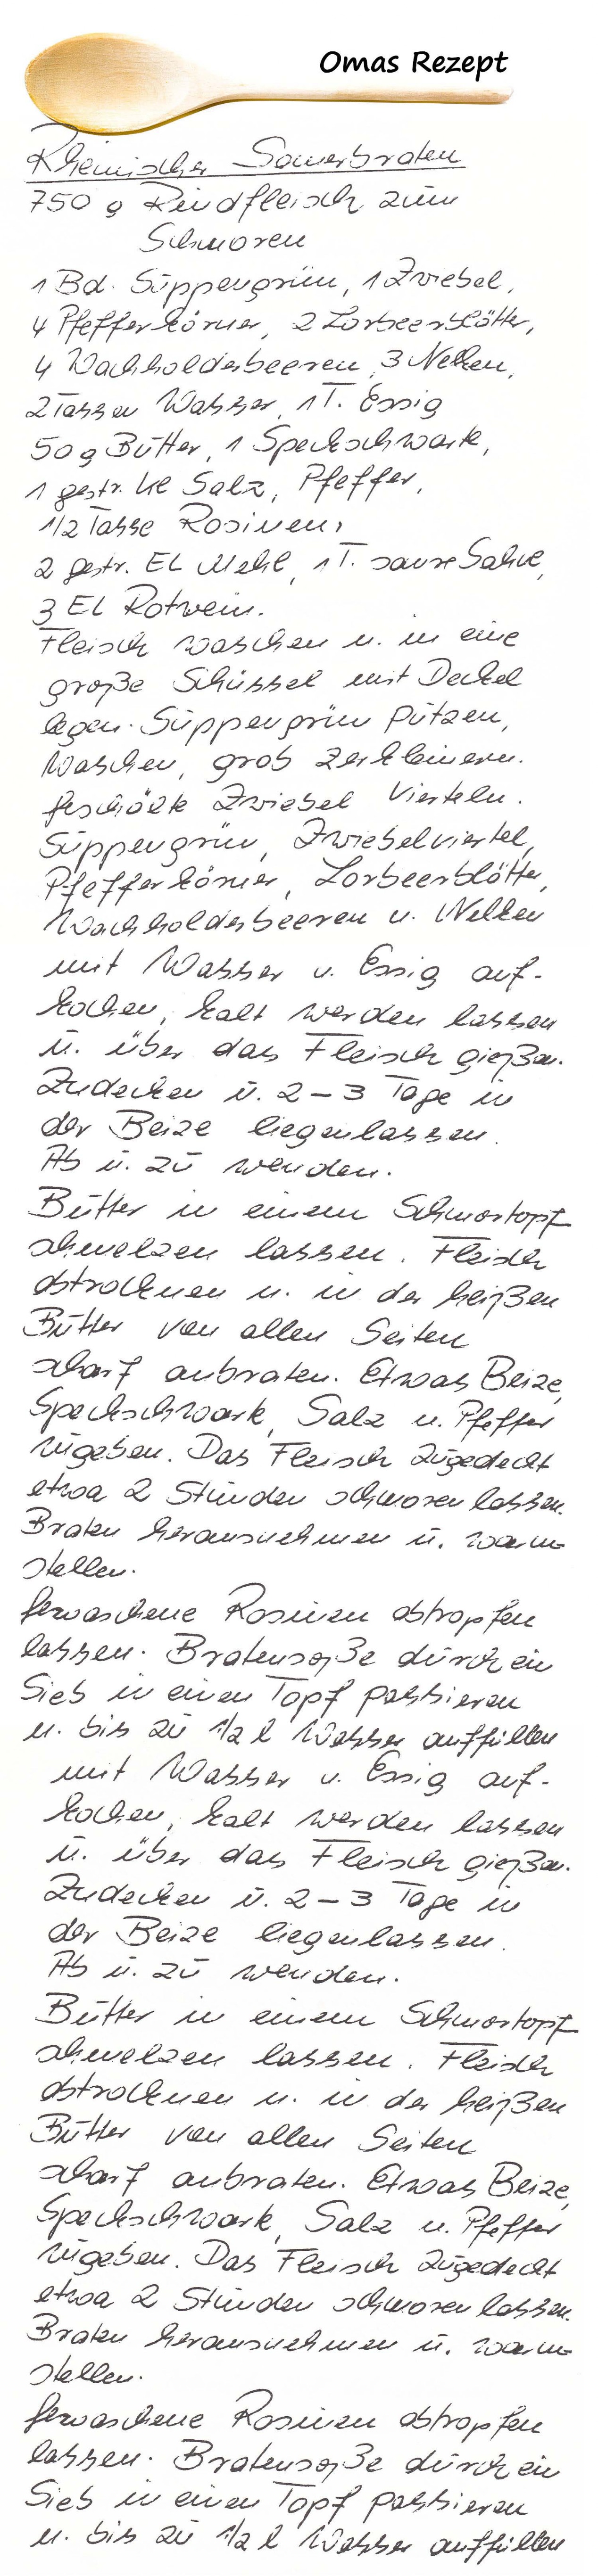 Omas Rezept
Rheinischer Sauerbraten
750 g Rindfleisch zum
Schmoren
1 Bd. Suppengrün, 1 Zwiebel,
4 Pfefferkörner, 2 Lorbeerblätter,
4 Wachholderbeeren, 3 Nelken,
2 Tassen Wasser, 1 T. Essig
50 g Butter, 1 Speckschwarte,
1 gestr. Salz, Pfeffer,
1/2 Tasse Rosinen,
2 gestr. EL Mehl, 1 T. saure Sahne,
3 EL Rotwein.
Fleisch waschen u. in eine
große Schüssel mit Deckel
legen. Suppengrün putzen,
waschen, grob zerkleinern.
Geschälte Zwiebel vierteln.
Suppengrün, Zwiebelviertel,
Pfefferkörner, Lorbeerblätter,
Wachholderbeeren u. Nelken
mit Wasser u. Essig auf-
kochen, kalt werden lassen
u. über das Fleisch gießen.
Zudecken u. 2-3 Tage in
der Beize liegenlassen.
Ab u. zu wenden.
Butter in einem Schmortopf
schmelzen lassen. Fleisch
abtrocknen u. in der heißen
Butter von allen Seiten
scharf anbraten. Etwas Beize,
Speckschwark, Salz u. Pfeffer
zugeben. Das Fleisch zugedeckt
etwa 2 Stunden schmoren lassen.
Braten herausnehmen u. warm-
stellen.
Gewaschene Rosinen abtropfen
lassen. Bratensoße durch ein
Sieb in einen Topf passieren
u. bis zu 1/2 l Wasser auffüllen
mit Wasser u. Essig auf-
kochen, kalt werden lassen
u. über das Fleisch gießen.
Zudecken u. 2-3 Tage in
der Beize liegenlassen.
Ab u. zu wenden.
Butter in einem Schmortopf
schmelzen lassen. Fleisch
abtrocknen u. in der heißen
Butter von allen Seiten
scharf anbraten. Etwas Beize,
Speckschwark, Salz u. Pfeffer
zugeben. Das Fleisch zugedeckt
etwa 2 Stunden schmoren lassen.
Braten herausnehmen u. warm-
stellen.
Gewaschene Rosinen abtropfen
lassen. Bratensoße durch ein
Sieb in einen Topf passieren
u. bis zu 1/2 l Wasser auffüllen